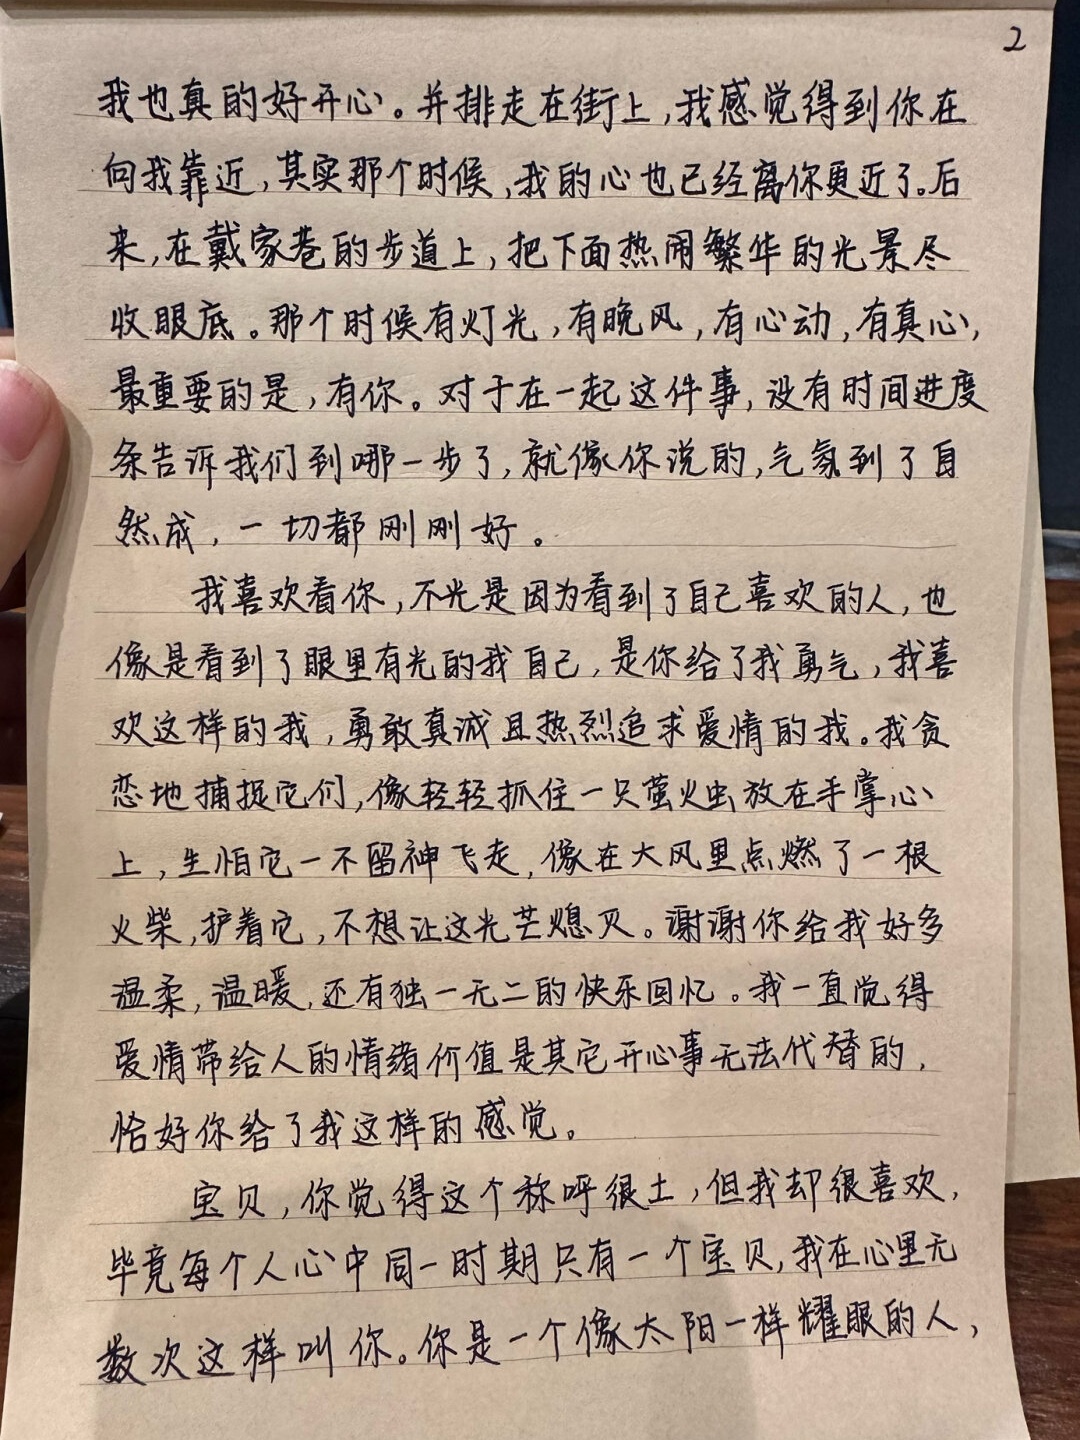 2
我也真的好开心。并排走在街上,我感觉得到你在
向我靠近,其实那个时候,我的心也已经离你更近了。后
来,在戴家巷的步道上,把下面热闹繁华的光景尽
收眼底。那个时候有灯光,有晚风,有心动,有真心,
最重要的是,有你。对于在一起这件事,没有时间进度
条告诉我们到哪一步了,就像你说的,气氛到了自
然成,一切都刚刚好。
我喜欢看你,不光是因为看到了自己喜欢的人,也
像是看到了眼里有光的我自己,是你给了我勇气,我喜
欢这样的我,勇敢真诚且热烈追求爱情的我。我贪
恋地捕捉它们,像轻轻抓住一只萤火虫放在手掌心
上,生怕它一不留神飞走,像在大风里点燃了一根
火柴,护着它,不想让这光芒熄灭。谢谢你给我好多
温柔,温暖,还有独一无二的快乐回忆。我一直觉得
爱情带给人的情绪价值是其它开心事无法代替的,
恰好你给了我这样的感觉。
宝贝,你觉得这个称呼很土,但我却很喜欢,
毕竟每个人心中同一时期只有一个宝贝,我在心里无
数次这样叫你。你是一个像太阳一样耀眼的人,